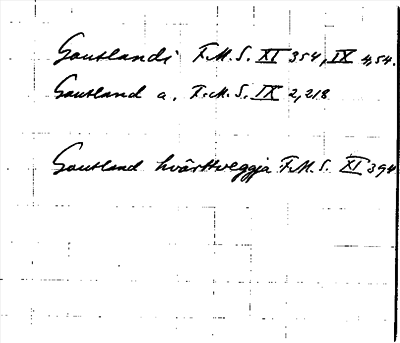 Gautlandi F.M.S. XI 354, IX 4,54.
Gautland a. F.M.S. IX 2,218
Gautland hvárttveggja F.M.S. XI 394